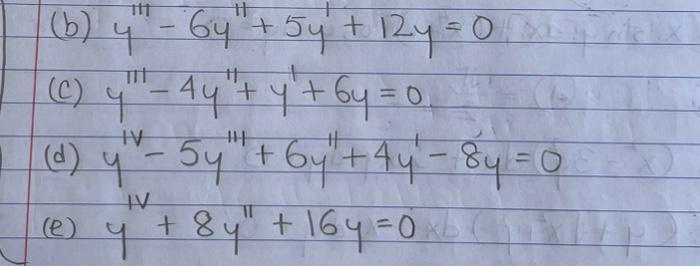 (b) y''' - 6y'' + 5y' + 12y = 0
(c) y''' - 4y'' + y' + 6y = 0
(d) y^IV - 5y''' + 6y'' + 4y' - 8y = 0
(e) y^IV + 8y'' + 16y = 0